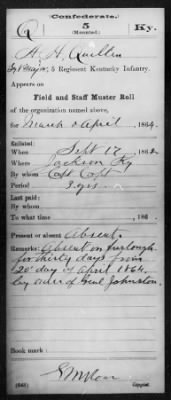 (Confederate.)
Q 5 Ky.
(Mounted.)
H. H. Quillen
Sgt Major, 5 Regiment Kentucky Infantry.
Appears on
Field and Staff Muster Roll
of the organization named above,
for March & April, 1864.
Enlisted:
When Sept 17, 1862
Where Jackson Ky
By whom Capt Capt
Period 3 yrs
Last paid:
By whom
To what time , 186 .
Present or absent Absent.
Remarks: Absent on furlough
for thirty days from
20" day of April 1864.
by order of Genl Johnston.
Book mark:
(646) Copyist.